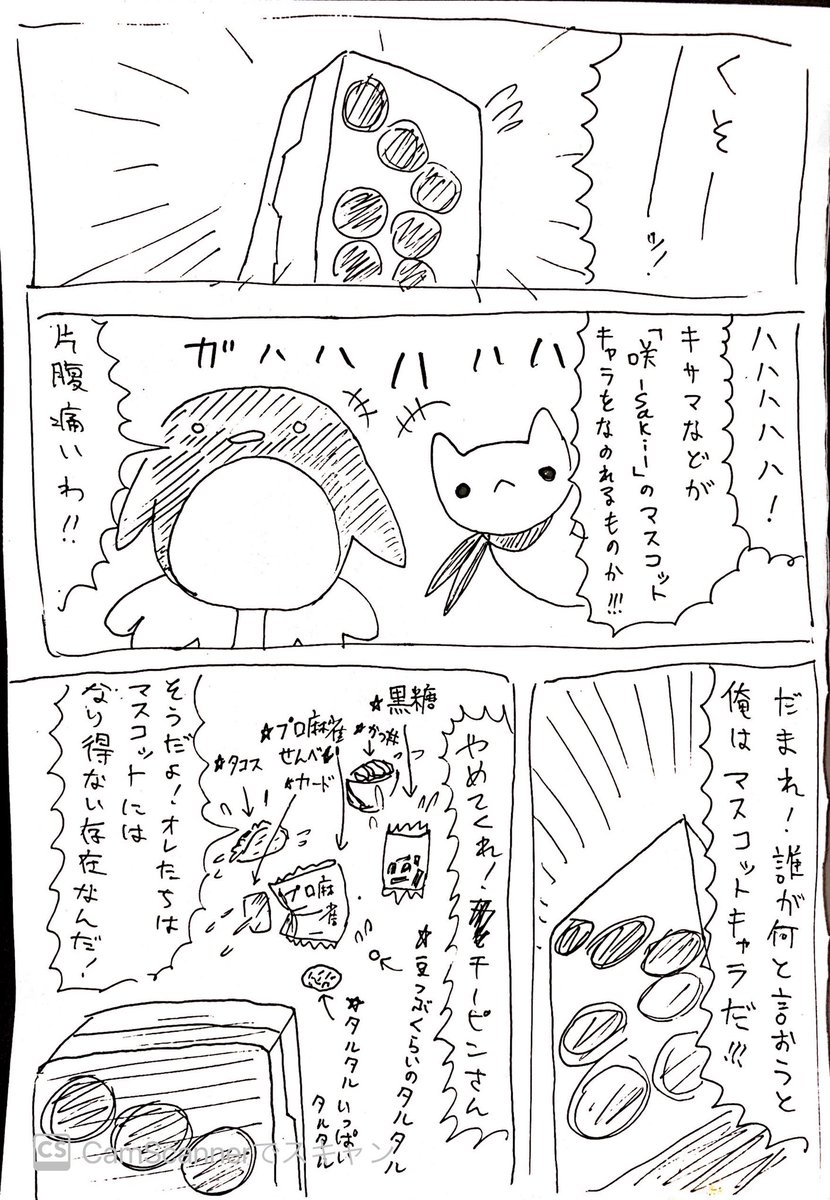 くそー
ーーッ!
ハハハハハ!
キサマなどが
「咲-Saki-」のマスコット
キャラをなのれるものか!!!
ガハハハハハ
片腹痛いわ!!
だまれ!誰が何と言おうと
俺はマスコットキャラだ!!!
やめてくれ!チーピンさん
☆黒糖
☆かつ丼
☆プロ麻雀
せんべい
☆カード
☆タコス
プロ麻雀
☆豆つぶくらいのタルタル
☆タルタルいっぱい
タルタル
そうだよ!オレたちは
マスコットには
なり得ない存在なんだ!
CS CamScannerでスキャン